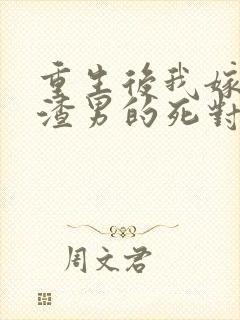 重生後我嫁
渣男的死對
周文君